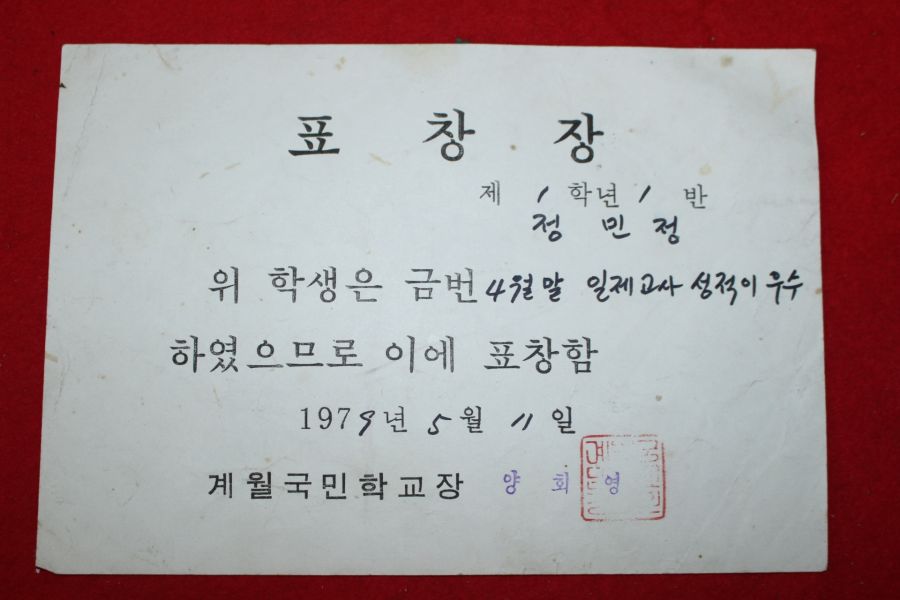 표 창 장
제 1 학년 1 반
정 민 정
위 학생은 금번 4월말 일제고사 성적이 우수
하였으므로 이에 표창함
1979년 5월 11일
계월국민학교장 양 회 영